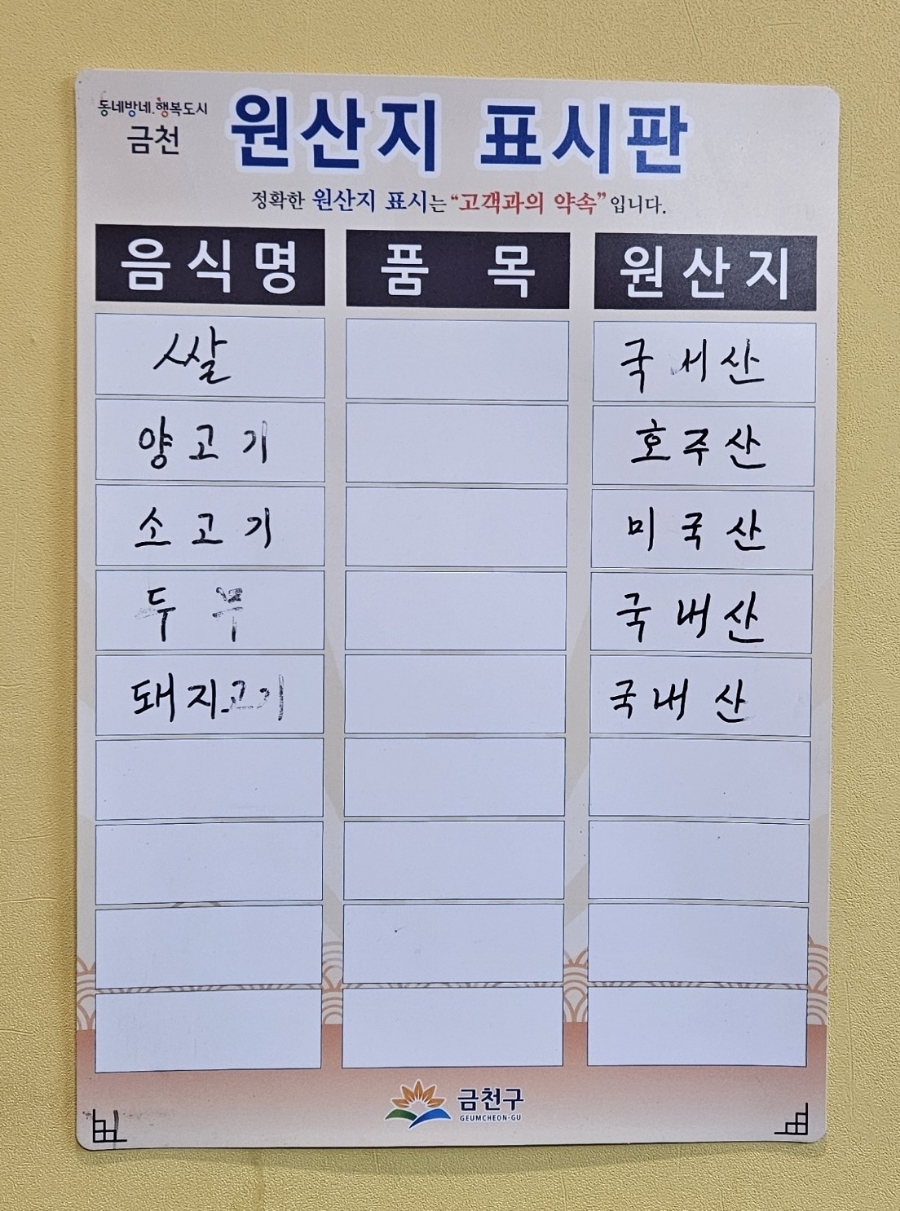 동네방네.행복도시
금천
원산지 표시판
정확한 원산지 표시는 “고객과의 약속” 입니다.
음식명 품목 원산지
쌀 국내산
양고기 호주산
소고기 미국산
두부 국내산
돼지고기 국내산
금천구
GEUMCHEON-GU